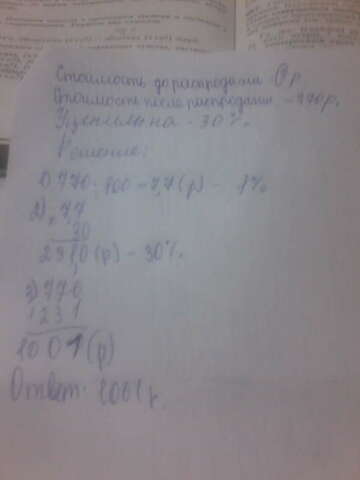 Стоимость до распродажи ? р.
Стоимость после распродажи - 770 р.
Уценили на - 30%.
Решение:
1) 770:100=7,7(р) - 1%
2) 7,7
30
231,0(р) - 30%.
3) 770
231
1001(р)
Ответ: 1001р.